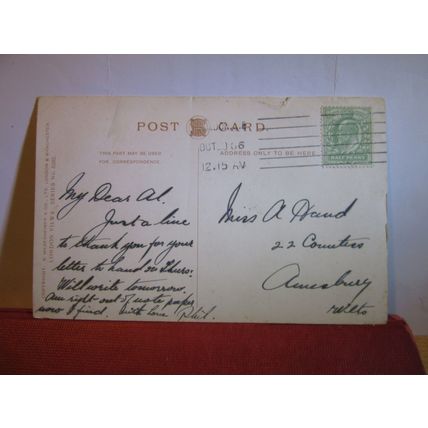 POST CARD.
THIS PART MAY BE USED
FOR CORRESPONDENCE.
ADDRESS ONLY TO BE HERE
OCT 06
12.15
HALF PENNY
My Dear Al.
Just a line
to thank you for your
letter to hand on Thurs.
Will write tomorrow.
Am right out of note paper
now I find. with love Phil.
Miss A Hand
22 Countess
Amesbury
Wilts
LONDON VIEWS. SERIES No.